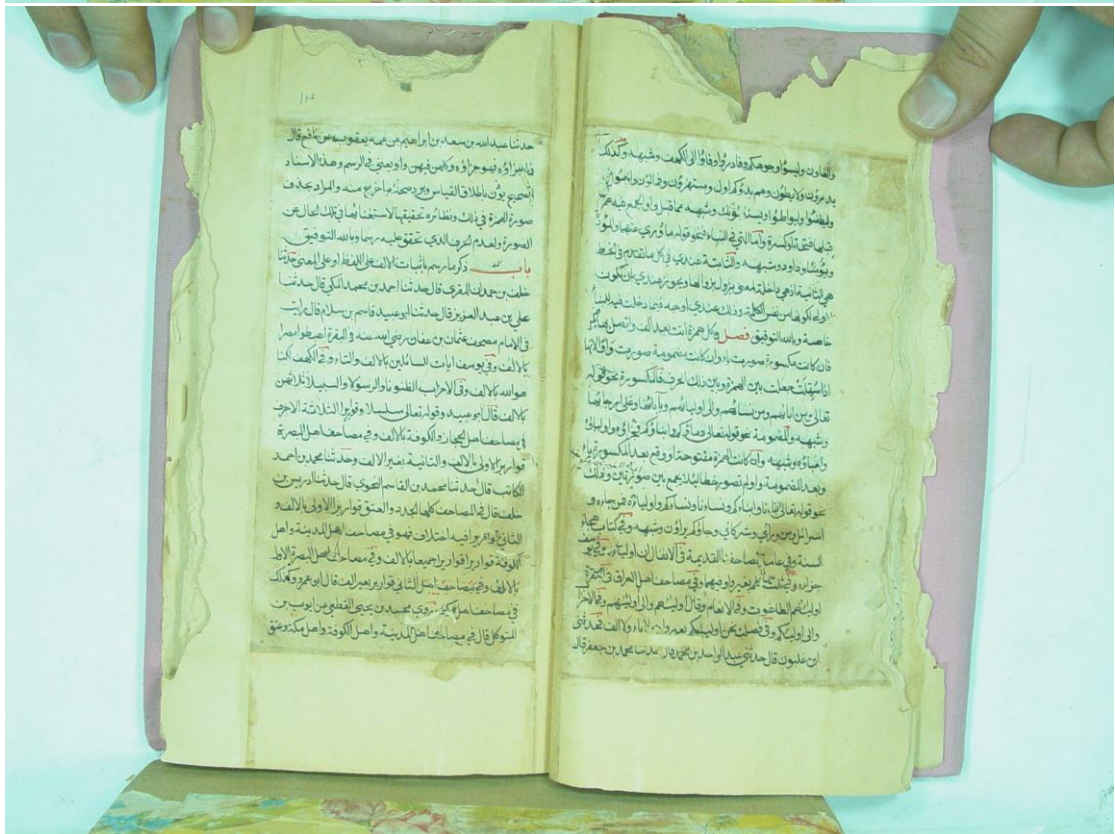 والغاون وليسؤا وهو هكم وفادرؤا وفاؤا الى الكهف وشبهه وكذلك
يدرؤن ولا يطؤن وهم بدؤكم اول ويستهزؤن وفمالؤن
وليطفئوا وليواطئوا وشبهه مما قبل واو الجمع فيه همز
قبلها فتحة او كسرة واما التي في البناء فنحو قوله
داود وشبهه والثابتة عندي في كل ما تقدم في الخط
هي الثانية اذ هي داخلة لمعنى يزول بزوالها ويجوز عندي ان تكون
الاولى لكونها من نفس الكلمة وذلك عندي اوجه فيما دخلت فيه للبناء
خاصة وبالله التوفيق فصل وكل همزة اتت بعد الف واتصل بها ضمير
فان كانت مكسورة صورت ياء وان كانت مضمومة صورت واوا لانها
اذا سهلت جعلت بين الهمزة وبين ذلك الحرف فالمكسورة نحو قوله
تعالى من ابائهم ومن نسائهم والى اوليائهم وبابائنا وعلى ارجائها
وشبهه والمضمومة نحو قوله تعالى جزاؤكم وابناؤكم
واحباؤه وشبهه وان كانت الهمزة مفتوحة او وقع بعد المكسورة ياء
وبعد المضمومة واو لم تصور خطا لئلا يجمع بين صورتين وذلك
نحو قوله تعالى ابناءنا وابناءكم ونساءنا ونساءكم واولياءه فمن جاءه و
اسرائيل ومن وراءي وشركائي وجاؤكم يراؤن وشبهه وفي كتاب هجاء
السنة وفي عامة مصاحفنا القديمة في الانفال ان اولياؤه وفي يوسف
جزاؤه في ثلثتها كلهم بغير واو فيهما وفي مصاحف اهل العراق في البقرة
اوليئهم الطاغوت وفي الانعام وقال اوليئهم والى اوليئهم وفي الاحزاب
والى اوليئكم وفي فصلت نحن اوليئكم بغير واو ولا ياء ولا الف فحدثني
ابن غلبون قال حدثني عبد الواحد بن محمد قال حدثنا محمد بن جعفر قال
١٢٤
حدثنا عبد الله بن سعد بن ابراهيم عن عمه يعقوب عن نافع قال
جزاؤه فهو جزاؤه وكلهن فيهن واو يعني في الرسم وهذا الاسناد
الصحيح يؤذن باطلاق القياس ويرد صحة ما خرج منه والمراد بحذف
صورة الهمزة في ذلك ونظائره تحقيقها لاستغنائها في تلك الحال عن
الصورة ولعدم الحرف الذي تحقق عليه رسما وبالله التوفيق
باب ذكر ما رسم باثبات الالف على اللفظ او على المعنى حدثنا
خلف بن حمدان المقرئ قال حدثنا احمد بن محمد المكي قال حدثنا
علي بن عبد العزيز قال حدثنا ابو عبيد قاسم بن سلام قال رايت
في الامام مصحف عثمان بن عفان رضي الله عنه في البقرة اهبطوا مصرا
بالالف وفي يوسف ايات للسائلين بالالف والتاء وفي الكهف لكنا
هو الله بالالف وفي الاحزاب الظنونا والرسولا والسبيلا ثلاثهن
بالالف قال ابو عبيد وقوله تعالى سلسلا وقواريرا الثلاثة الاحرف
في مصاحف اهل الحجاز والكوفة بالالف وفي مصاحف اهل البصرة
قواريرا الاولى بالالف والثانية بغير الالف وحدثنا محمد بن احمد
الكاتب قال حدثنا محمد بن القاسم النحوي قال حدثنا ادريس بن
خلف قال في المصاحف كلها الجدد والعتق قواريرا الاولى بالالف و
الثاني قواريرا فيه اختلاف فهو في مصاحف اهل المدينة واهل
الكوفة قواريرا قواريرا جميعا بالالف وفي مصاحف اهل البصرة الاول
بالالف وفي مصاحف اهل الثاني قوارير بغير الف قال ابو عمرو وكذلك
في مصاحف اهل مكة وروى محمد بن يحيى القطعي عن ايوب بن
المتوكل قال في مصاحف اهل المدينة واهل الكوفة واهل مكة وعتق